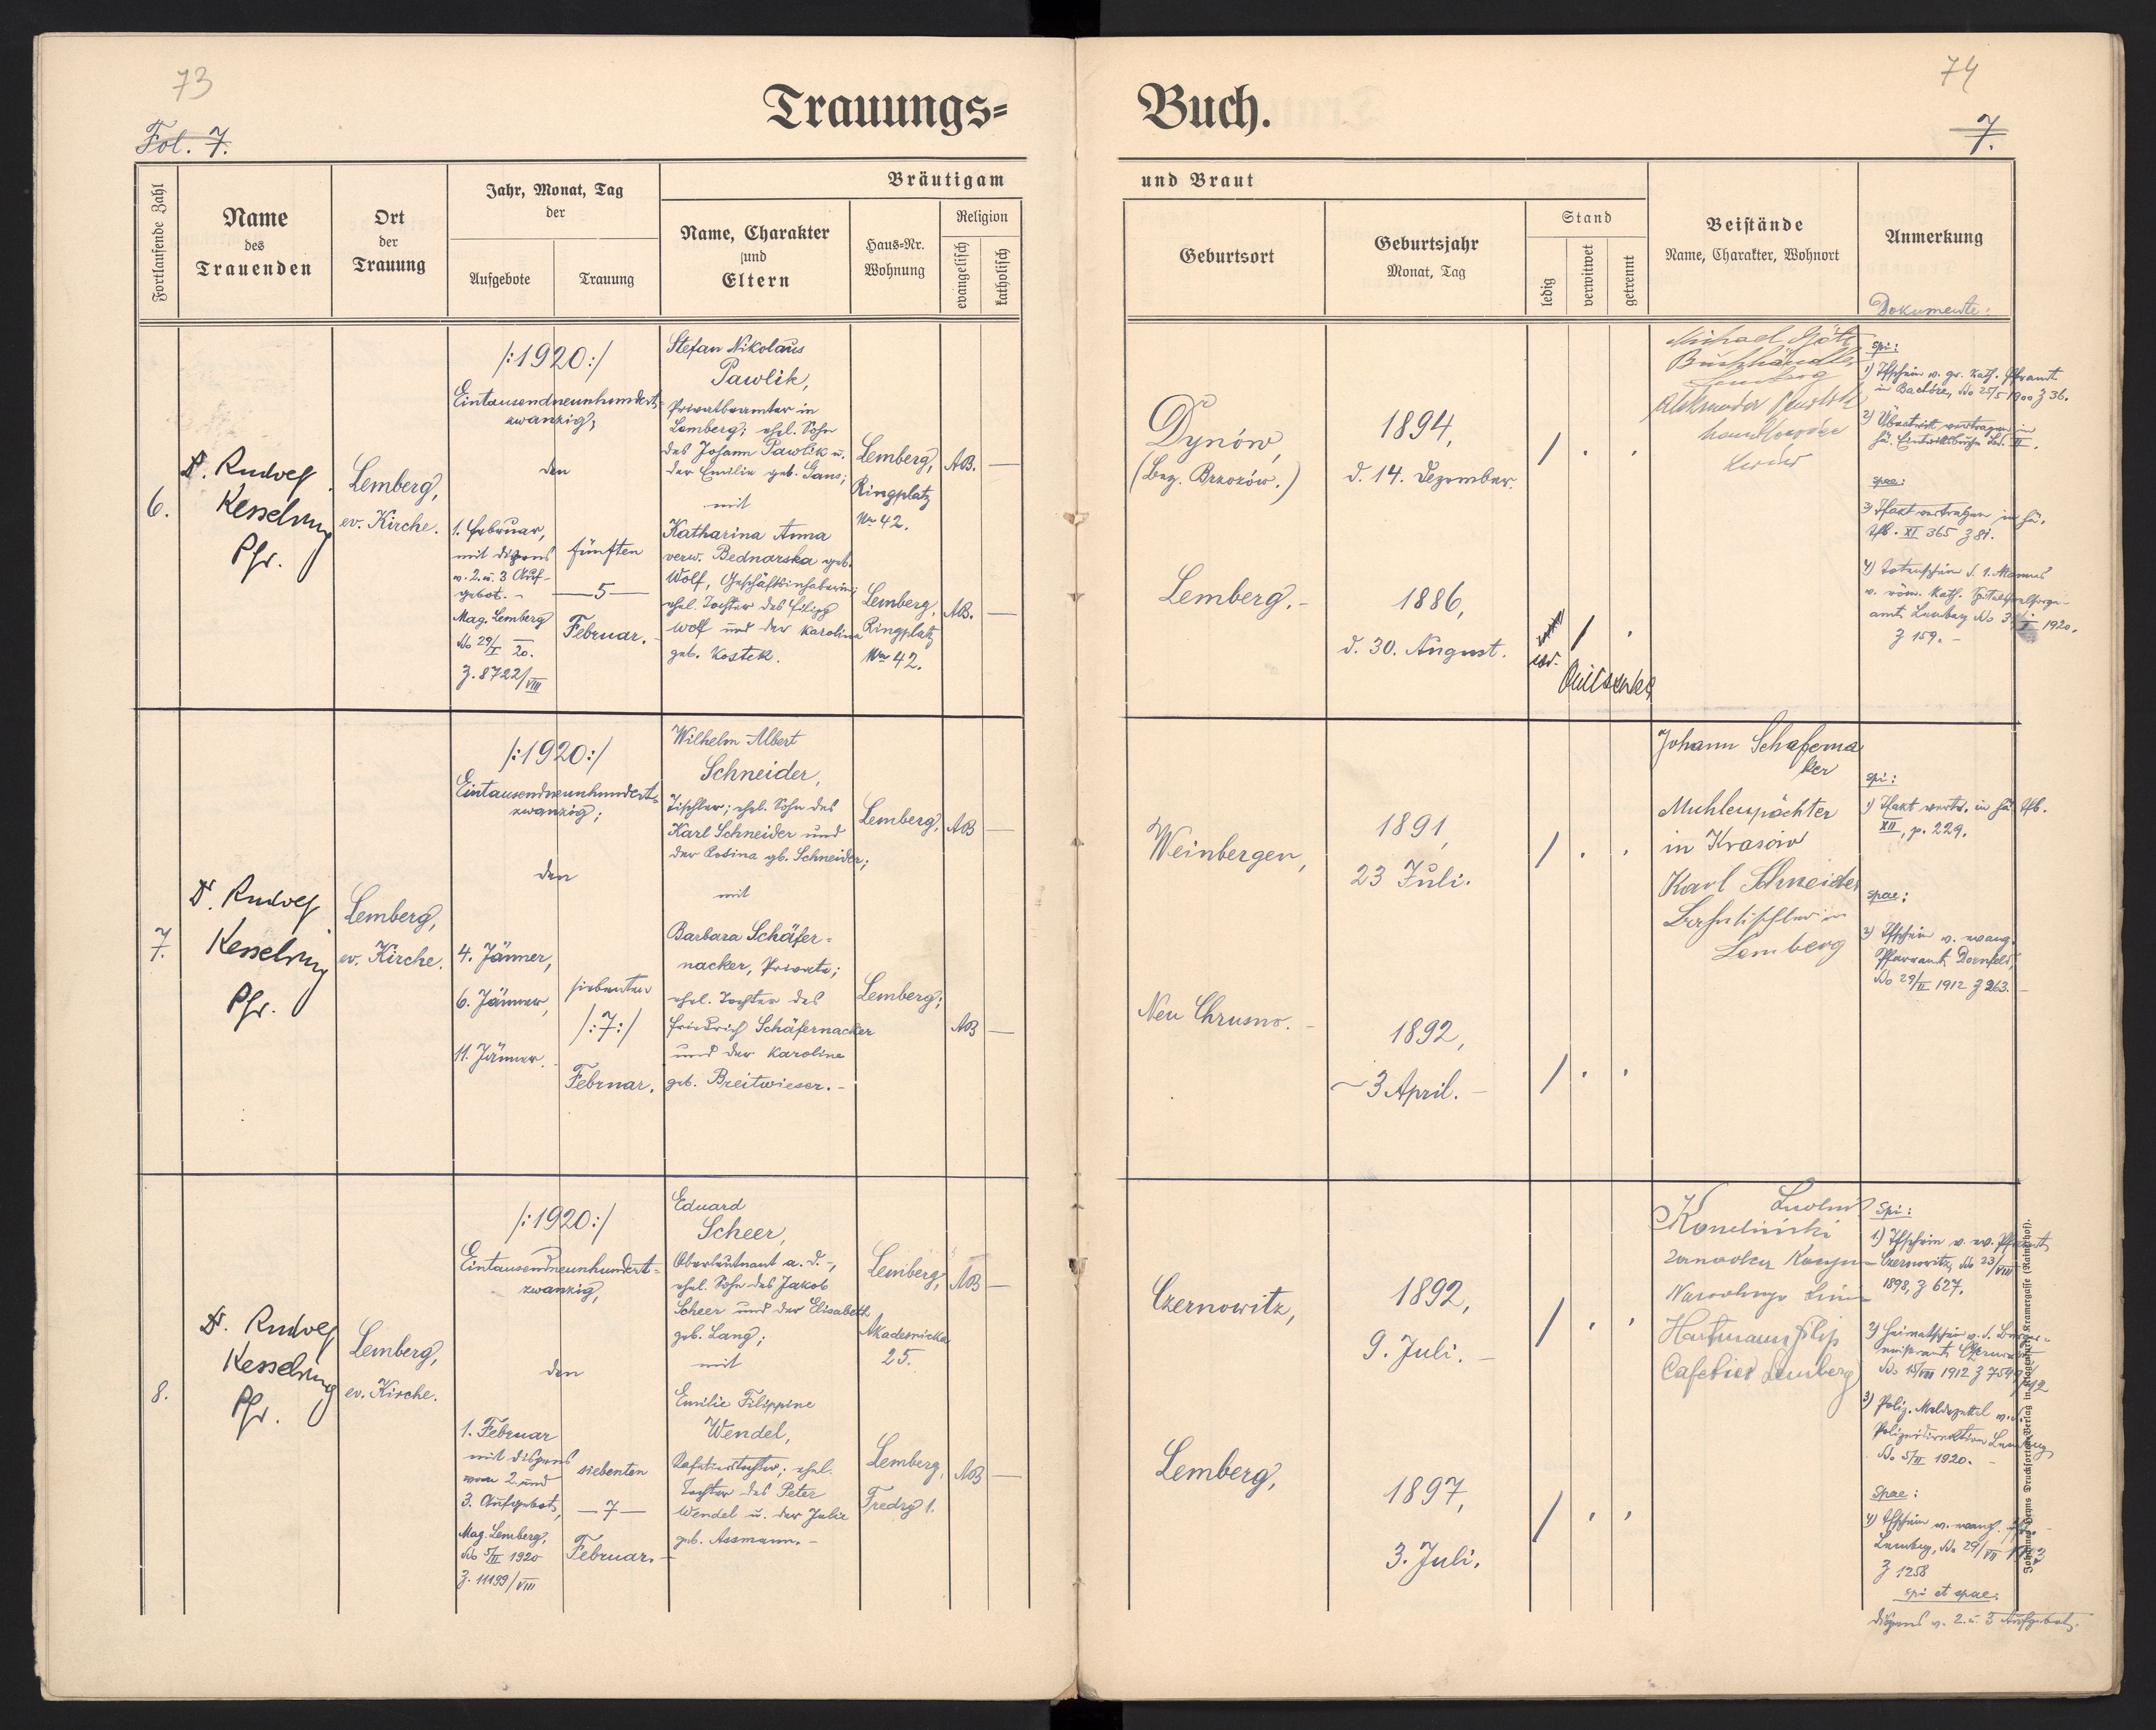 73
Fol. 7.
Trauungs=
Fortlaufende Zahl
Name
des
Trauenden
Ort
der
Trauung
Jahr, Monat, Tag
der
Aufgebote
Trauung
Bräutigam
Name, Charakter
und
Eltern
Haus=Nr.
Wohnung
Religion
evangelisch
katholisch
6.
Dr. Rudolf
Kesselring
Pfr.
Lemberg,
ev. Kirche.
/:1920:/
Eintausendneunhundert-
zwanzig,
den
1. Februar,
mit Dispens
v. 2. u. 3 Auf-
gebot. -
Mag. Lemberg
ddo 29/I 20.
Z. 8722/VIII
fünften
—5—
Februar.
Stefan Nikolaus
Pawlik,
Privatbeamter in
Lemberg; ehel. Sohn
des Johann Pawlik u.
der Emilie geb. Gans;
mit
Katharina Anna
verw. Bednarska geb.
Wolf, Geschäftsinhaberin;
ehel. Tochter des Filipp
Wolf und der Karolina
geb. Kostek.
Lemberg,
Ringplatz
Nr 42.
AB. —
Lemberg,
Ringplatz
Nr 42.
AB. —
7.
Dr. Rudolf
Kesselring
Pfr.
Lemberg,
ev. Kirche.
/:1920:/
Eintausendneunhundert-
zwanzig;
den
4. Jänner,
6. Jänner,
11. Jänner.
siebenten
/:7:/
Februar.
Wilhelm Albert
Schneider,
Tischler; ehel. Sohn des
Karl Schneider und
der Rosina gb. Schneider;
mit
Barbara Schäfer-
nacker, Private;
ehel. Tochter des
Friedrich Schäfernacker
und der Karoline
geb. Breitwieser. -
Lemberg,
AB —
Lemberg;
AB —
8.
Dr. Rudolf
Kesselring
Pfr.
Lemberg,
ev. Kirche.
/:1920:/
Eintausendneunhundert-
zwanzig,
den
1. Februar
mit Dispens
vom 2. und
3. Aufgebot,
Mag. Lemberg,
ddo 5/II 1920
Z. 11199/VIII
siebenten
—7—
Februar. -
Eduard
Scheer,
Oberleutnant a. D. -,
ehel. Sohn des Jakob
Scheer und der Elisabeth
geb. Lang;
mit
Emilie Filippine
Wendel,
Cafetierstochter; ehel.
Tochter des Peter
Wendel u. der Julie
geb. Assmann. -
Lemberg,
Akademicka
25.
AB —
Lemberg,
Fredry 1.
AB —
74
7.
Buch.
und Braut
Geburtsort
Geburtsjahr
Monat, Tag
Stand
ledig
verwitwet
getrennt
Beistände
Name, Charakter, Wohnort
Anmerkung
Dokumente:
Dynów,
(Bez. Brzozów.)
1894,
d. 14. Dezember.
Lemberg. -
1886,
d. 30. August.
Michael
Buchhändler
Lemberg
spi:
1) Tfschein v. gr. kath. Pfarramt
in Bachórz, ddo 25/5 1900 Z 36.
2) Übertritt eingetragen in
hä. Eintrittsbuche Bd. II.
spae:
3) Tfakt eingetragen in hä.
Tfb. XI 365 Z 81.
4) Totenschein d. 1. Mannes
v. röm. kath. Spitalseelsorge-
amt Lemberg ddo 3/I 1920.
Z 159. -
Weinbergen,
1891,
23 Juli.
Neu Chrusno. -
1892,
3 April. -
Johann Schäferna
ker
Muhlenpächter
in Krasów
Karl Schneider
Bahntischler in
Lemberg
spi:
1) Tfakt eingetr. in hä. Tfb.
XII, p. 229.
spae:
2) Tfschein v. evang.
Pfarramt Dornfeld,
ddo 29/II 1912 Z 263. -
Czernowitz,
1892,
9. Juli. -
Lemberg,
1897,
3. Juli.
Hartmann Filip
Cafetier Lemberg
Spi:
1) Tfschein v. ev. Pfarramt
Czernowitz, ddo 23/VIII
1898, Z 627.
2) Heimatschein v. d. Bürger-
meisteramt Czernowitz
ddo 15/VIII 1912 Z 7599/12
3) Poliz. Meldezettel v. d.
Polizeidirektion Lemberg
ddo 5/II 1920. -
Spae:
4) Tfschein v. evang. Pfr.
Lemberg, ddo 29/VII
Z 1258
spi et spae:
Dispens v. 2. u. 3 Aufgebot.